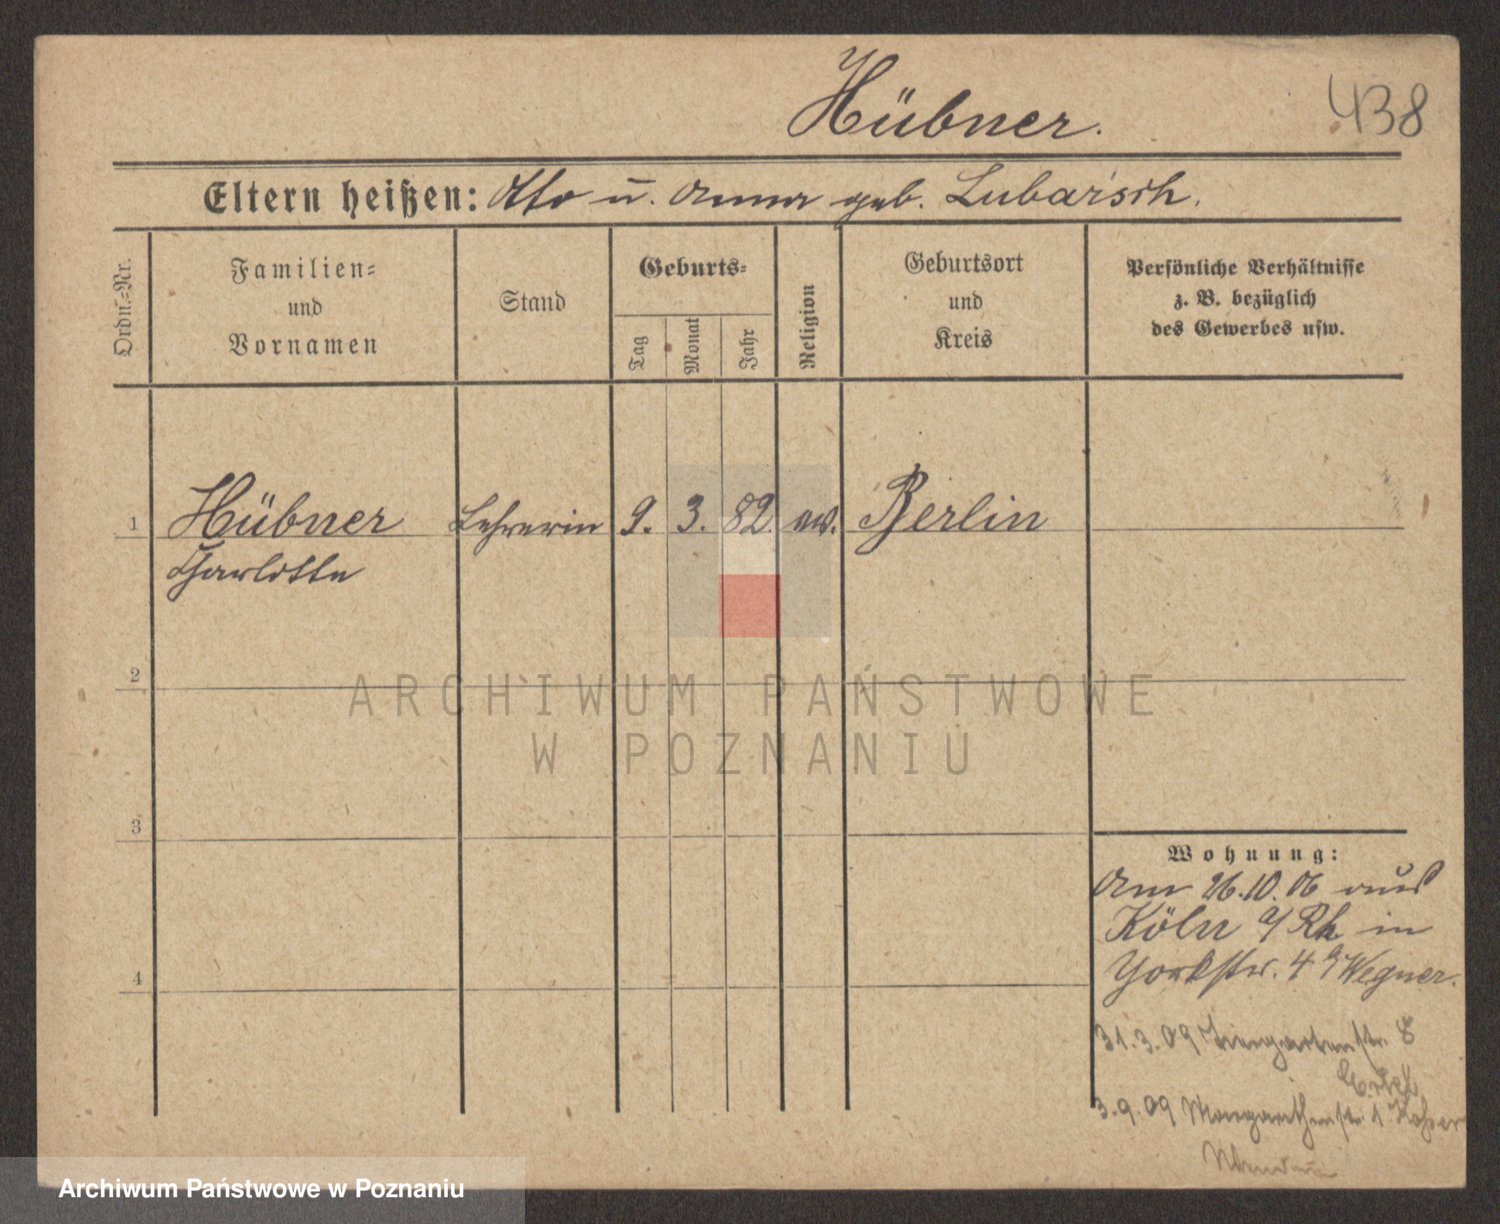 Hübner.
438
Eltern heißen: Otto u. Anna geb. Lubarsch.
Ordn.-Nr.
Familien-
und
Vornamen
Stand
Geburts-
Tag
Monat
Jahr
Religion
Geburtsort
und
Kreis
Persönliche Verhältnisse
z. B. bezüglich
des Gewerbes usw.
1
Hübner Lehrerin 9. 3. 82. ev. Berlin
Charlotte
2
ARCHIWUM PAŃSTWOWE
W POZNANIU
3
Wohnung:
Am 26.10.06 aus
Köln a/Rh in
Yorkstr. 4 a/Wegner.
4
31.3.09 Tiergartenstr. 8
3.9.09 Margarethenstr. 1
Archiwum Państwowe w Poznaniu